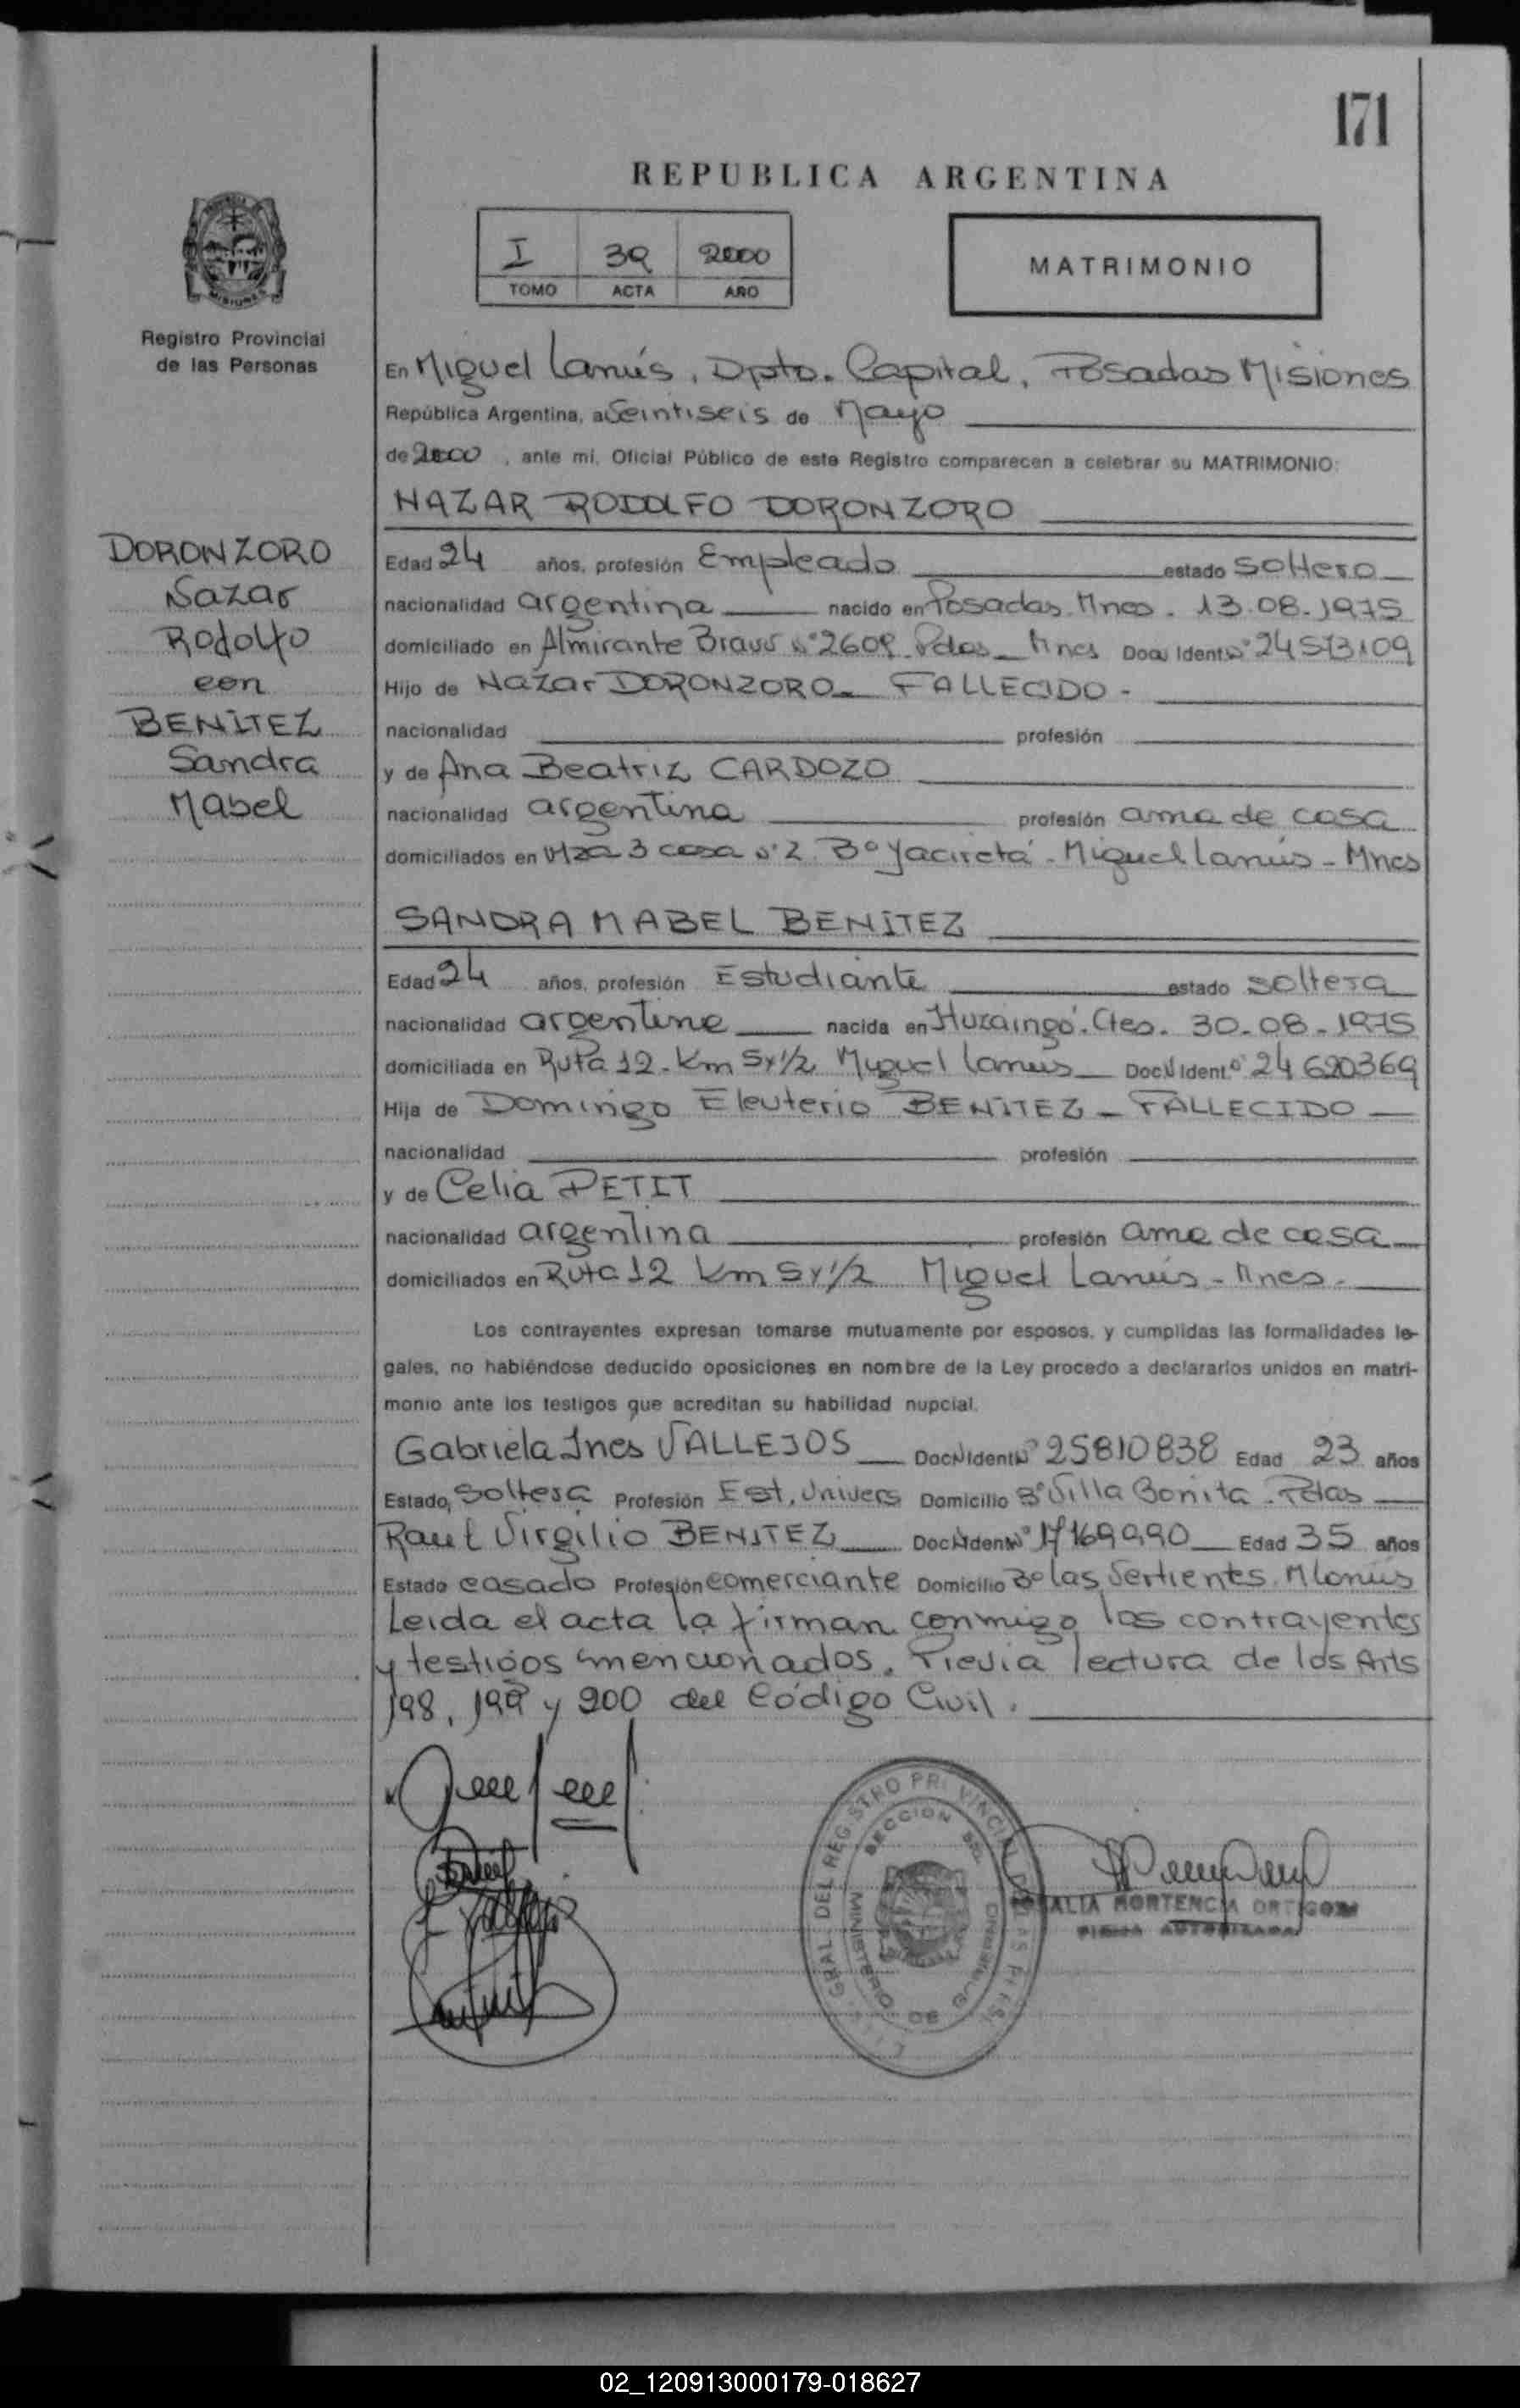 171
REPUBLICA ARGENTINA
I 39 2000
TOMO ACTA AÑO
MATRIMONIO
MISIONES
Registro Provincial
de las Personas
En Miguel Lanús, Dpto. Capital, Posadas Misiones
República Argentina, a Veintiseis de Mayo
de 2000, ante mí, Oficial Público de este Registro comparecen a celebrar su MATRIMONIO:
NAZAR RODOLFO DORONZORO
DORONZORO
Nazar
Rodolfo
con
BENITEZ
Sandra
Mabel
Edad 24 años, profesión Empleado estado soltero
nacionalidad argentina nacido en Posadas. Mnes. 13.08.1975
domiciliado en Almirante Brown N° 2609 Pdas - Mnes Doc. Ident. N° 24573109
Hijo de Nazar DORONZORO - FALLECIDO -
nacionalidad profesión
y de Ana Beatriz CARDOZO
nacionalidad argentina profesión ama de casa
domiciliados en Mza 3 casa N° 2 B° Yaciretá - Miguel Lanús - Mnes
SANDRA MABEL BENITEZ
Edad 24 años, profesión Estudiante estado soltera
nacionalidad argentina nacida en Ituzaingó. Ctes. 30-08-1975
domiciliada en Ruta 12 - Km 5 y 1/2 Miguel Lanus Doc. N Ident. ° 24 620369
Hija de Domingo Eleuterio BENITEZ - FALLECIDO
nacionalidad profesión
y de Celia PETIT
nacionalidad argentina profesión ama de casa
domiciliados en Ruta 12 Km 5 y 1/2 Miguel Lanús - Mnes.
Los contrayentes expresan tomarse mutuamente por esposos, y cumplidas las formalidades le-
gales, no habiéndose deducido oposiciones en nombre de la Ley procedo a declararlos unidos en matri-
monio ante los testigos que acreditan su habilidad nupcial.
Gabriela Ines VALLEJOS Doc. N Ident. N° 25810838 Edad 23 años
Estado, Soltera Profesión Est. Univers Domicilio B° Villa Bonita. Pdas
Raul Virgilio BENITEZ Doc. N Ident. N° 17169990 Edad 35 años
Estado casado Profesión comerciante Domicilio B° las Vertientes. M Lanús
Leida el acta la firman conmigo los contrayentes
y testigos mencionados. Previa lectura de los Arts
198, 199 y 200 del Código Civil.
HORTENCIA
FIRMA AUTORIZADA
02_120913000179-018627